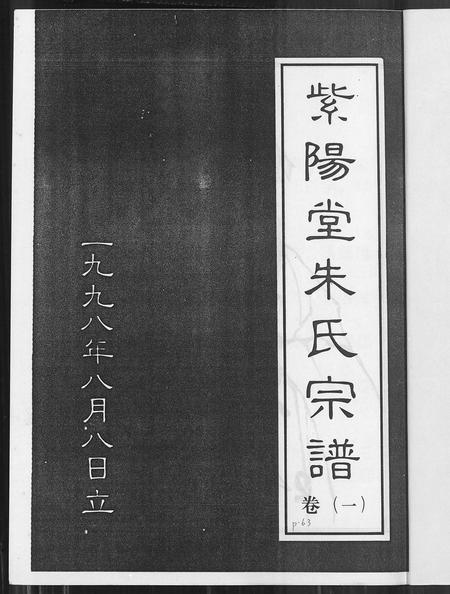 紫陽堂朱氏宗譜
卷（一）
p.63
一九九八年八月八日立